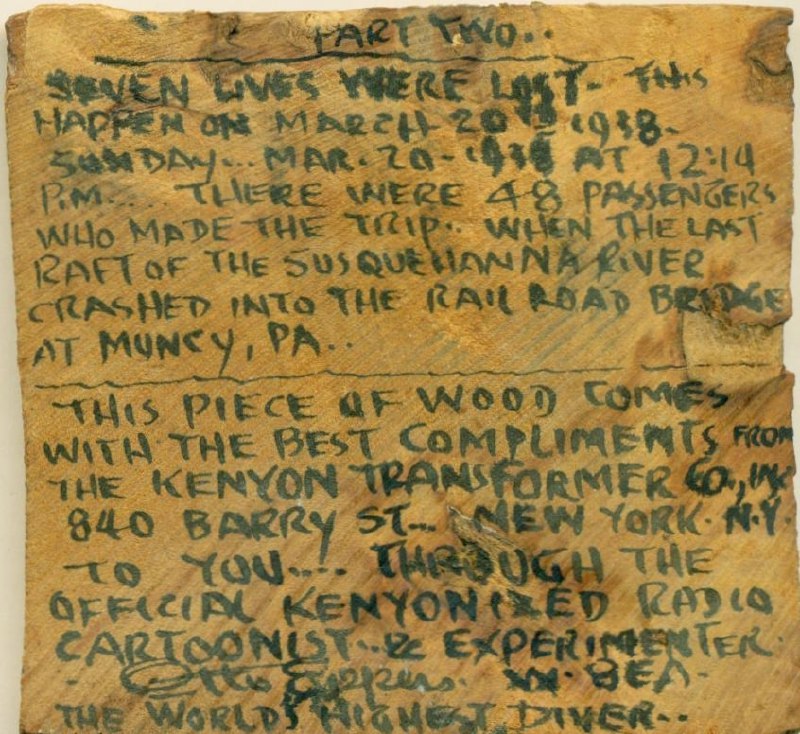 PART TWO..
SEVEN LIVES WERE LOST. THIS
HAPPEN ON MARCH 20TH 1938.
SUNDAY... MAR. 20-1938 AT 12:14
P.M.... THERE WERE 48 PASSENGERS
WHO MADE THE TRIP.. WHEN THE LAST
RAFT OF THE SUSQUEHANNA RIVER
CRASHED INTO THE RAIL ROAD BRIDGE
AT MUNCY, PA..
THIS PIECE OF WOOD COMES
WITH THE BEST COMPLIMENTS FROM
THE KENYON TRANSFORMER CO., INC
840 BARRY ST... NEW YORK. N.Y.
TO YOU.... THROUGH THE
OFFICIAL KENYONIZED RADIO
CARTOONIST..& EXPERIMENTER.
- Otto Eppers. 8EA-
THE WORLDS HIGHEST DIVER..